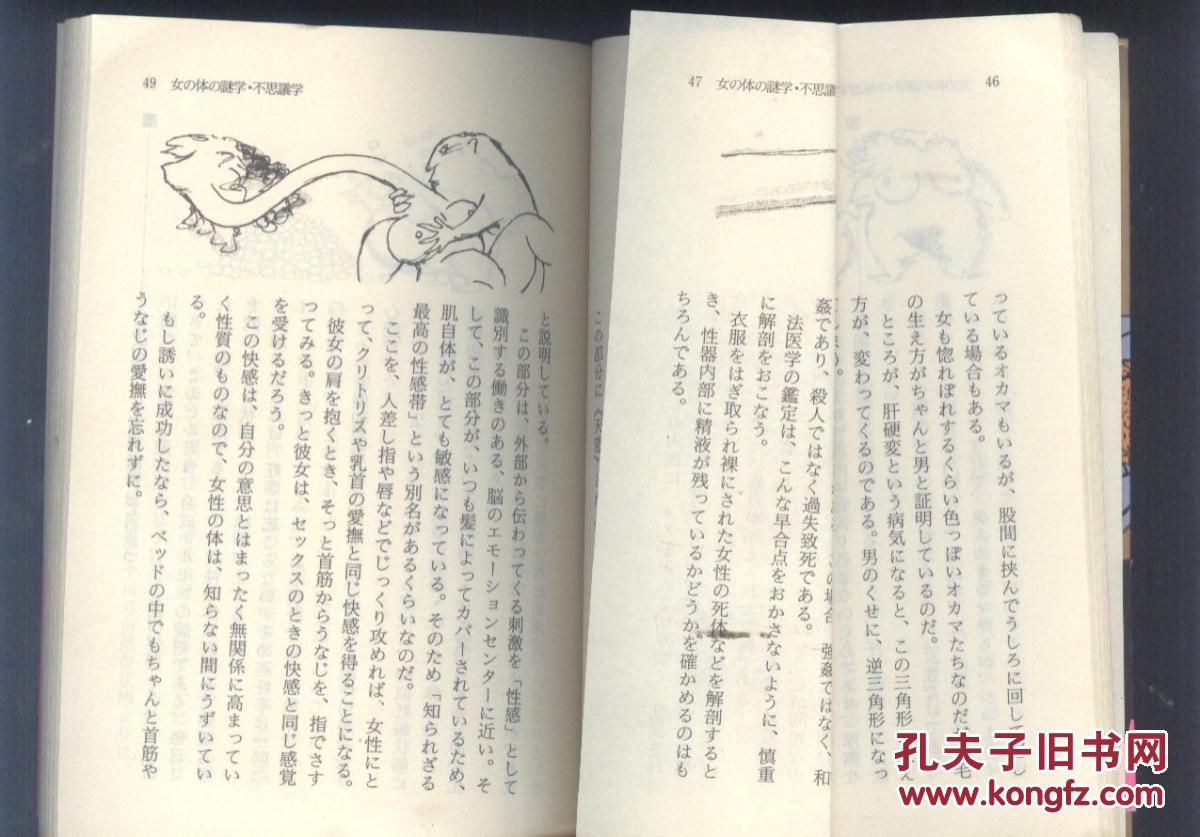 46
っているオカマもいるが、股間に挟んでうしろに回して
ている場合もある。
美女も惚れぼれするくらい色っぽいオカマたちなのだ
の生え方がちゃんと男と証明しているのだ。
ところが、肝硬変という病気になると、この三角形
方が、変わってくるのである。男のくせに、逆三角形になっ
47 女の体の謎学・不思議
姦であり、殺人ではなく過失致死である。
法医学の鑑定は、こんな早合点をおかさないように、慎重
に解剖をおこなう。
衣服をはぎ取られ裸にされた女性の死体などを解剖すると
き、性器内部に精液が残っているかどうかを確かめるのはも
ちろんである。
この部分に
49 女の体の謎学・不思議学
と説明している。
この部分は、外部から伝わってくる刺激を「性感」として
識別する働きのある、脳のエモーションセンターに近い。そ
して、この部分が、いつも髪によってカバーされているため、
肌自体が、とても敏感になっている。そのため「知られざる
最高の性感帯」という別名があるくらいなのだ。
ここを、人差し指や唇などでじっくり攻めれば、女性にと
って、クリトリスや乳首の愛撫と同じ快感を得ることになる。
彼女の肩を抱くとき、そっと首筋からうなじを、指でさす
ってみる。きっと彼女は、セックスのときの快感と同じ感覚
を受けるだろう。
この快感は、自分の意思とはまったく無関係に高まってい
く性質のものなので、女性の体は、知らない間にうずいてい
る。
もし誘いに成功したなら、ベッドの中でもちゃんと首筋や
うなじの愛撫を忘れずに。
孔夫子旧书网
www.kongfz.com